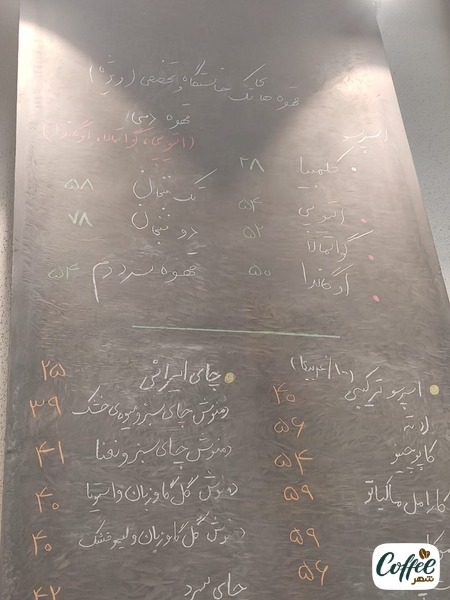 قهوه های تک خاستگاه و تخصصی (ویژه)
اسپرسو
کلمبیا ۲۸
اتیوپی ۵۴
گواتمالا ۵۲
اوگاندا ۵۰
قهوه دمی
(اتیوپی، گواتمالا، اوگاندا)
تک فنجان ۵۸
دو فنجان ۷۸
قهوه سرد دم ۵۴
(۱۰۰٪ عربیکا)
اسپرسو ترکیبی ۴۰
لاته ۵۶
کاپوچینو ۵۴
کارامل ماکیاتو ۵۹
۵۹
۵۶
چای ایرانی ۲۵
دمنوش چای سبز و میوه‌ی خشک ۳۹
دمنوش چای سبز و نعنا ۴۱
دمنوش گل گاوزبان و استویا ۴۰
دمنوش گل گاوزبان و لیمو خشک ۴۰
چای سرد ۴۲
Coffee
شهر